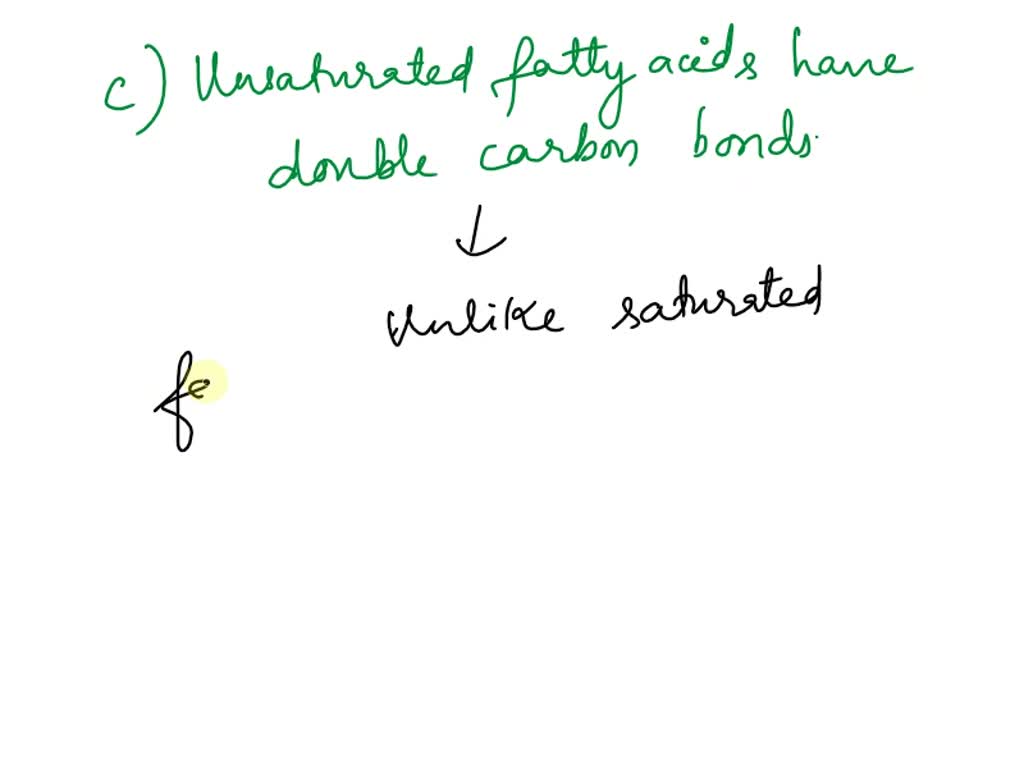 c) Unsaturated fatty acids have
double carbon bonds.
↓
Unlike saturated
fa